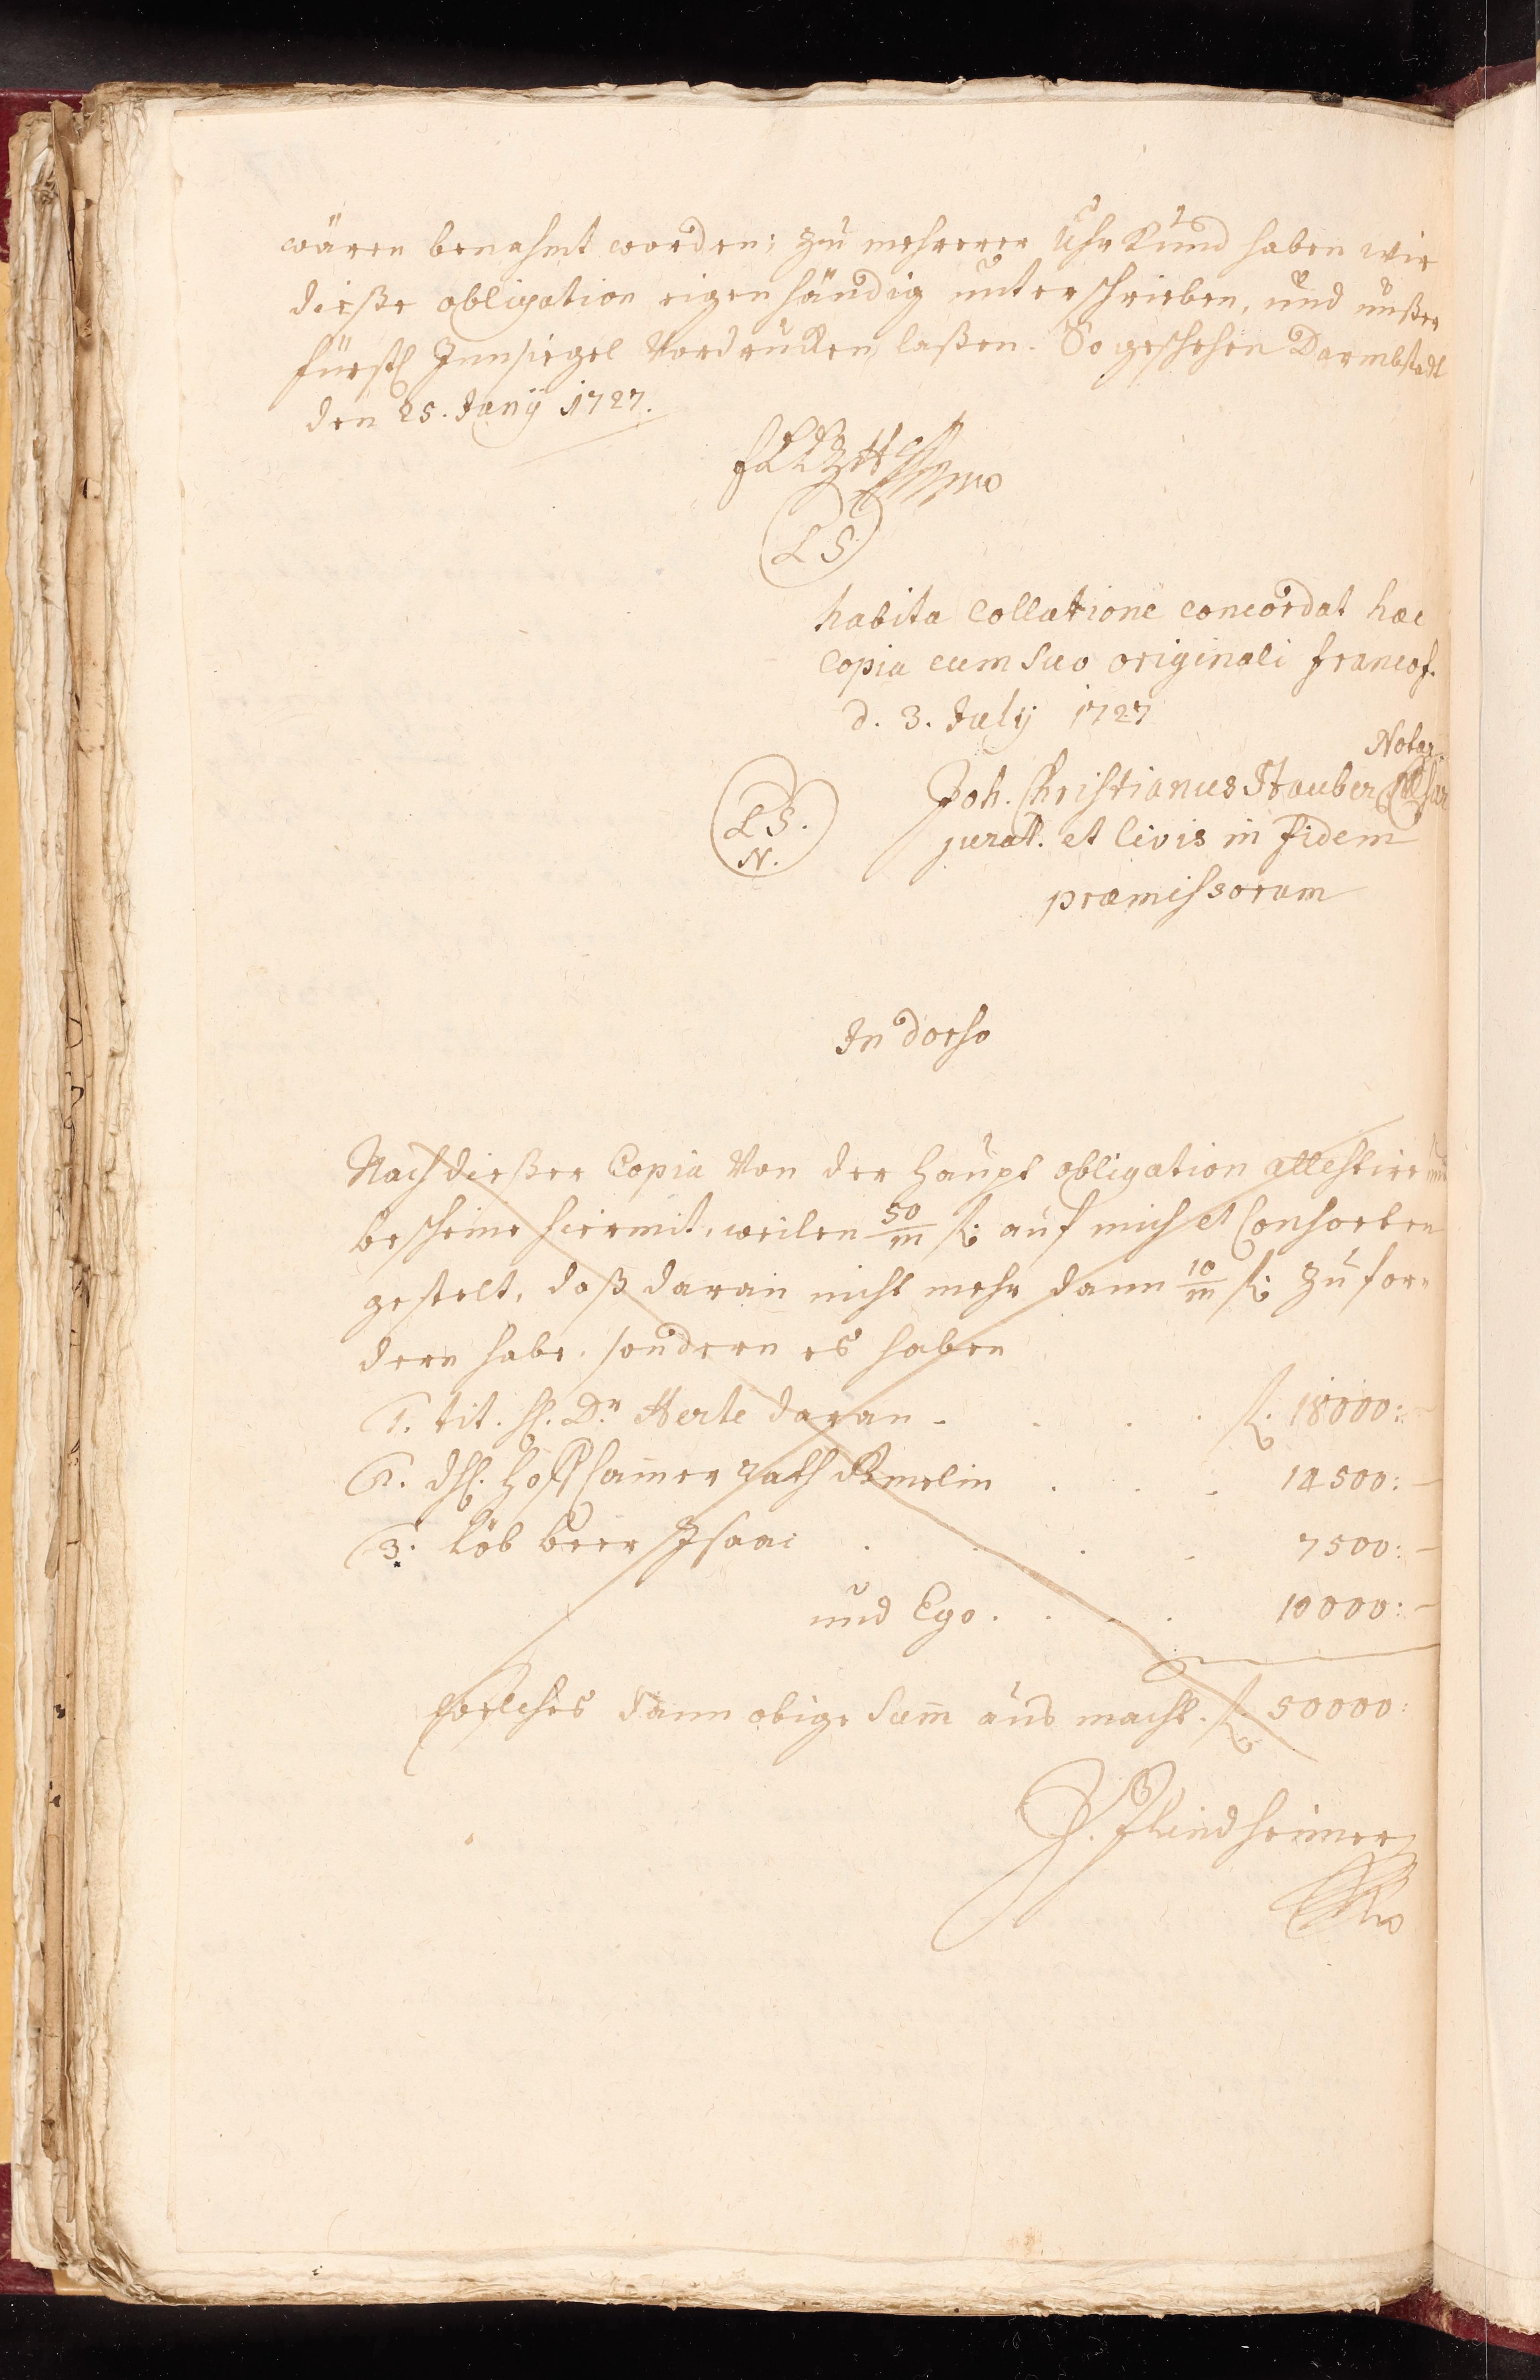 wären benahmt worden; zu mehrerer Uhrkund haben wir
dieße obligation eigenhändig unterschrieben, und unßer
fürstl Innsiegel Vordrucken laßen. So geschehen Darmbstadt
den 25. Junij 1727.
ELLZHessen
LS
habita collatione concordat hæc
copia cum suo originali francof.
d. 3. July 1727
Notar
LS.
N.
Joh. Christianus Stauber
jurat. et civis in fidem
præmissorum
In dorso
Nach dießer Copia Von der haupt obligation attestire und
bescheine hiermit, weilen 50/m fl: auf mich et Consorten
gestelt, daß daran nicht mehr dann 10/m fl: zu for-
dern habe, sondern es haben
1. tit. H. Dr. Herte daran - fl. 18000:-
2. dH. Hoff Camer rath Gmelin 14500:-
3. Löb beer Isaac 7500:-
und Ego. 10000:-
welches dann obige Sum̄ aus macht. fl 50000:
J. flindheimer